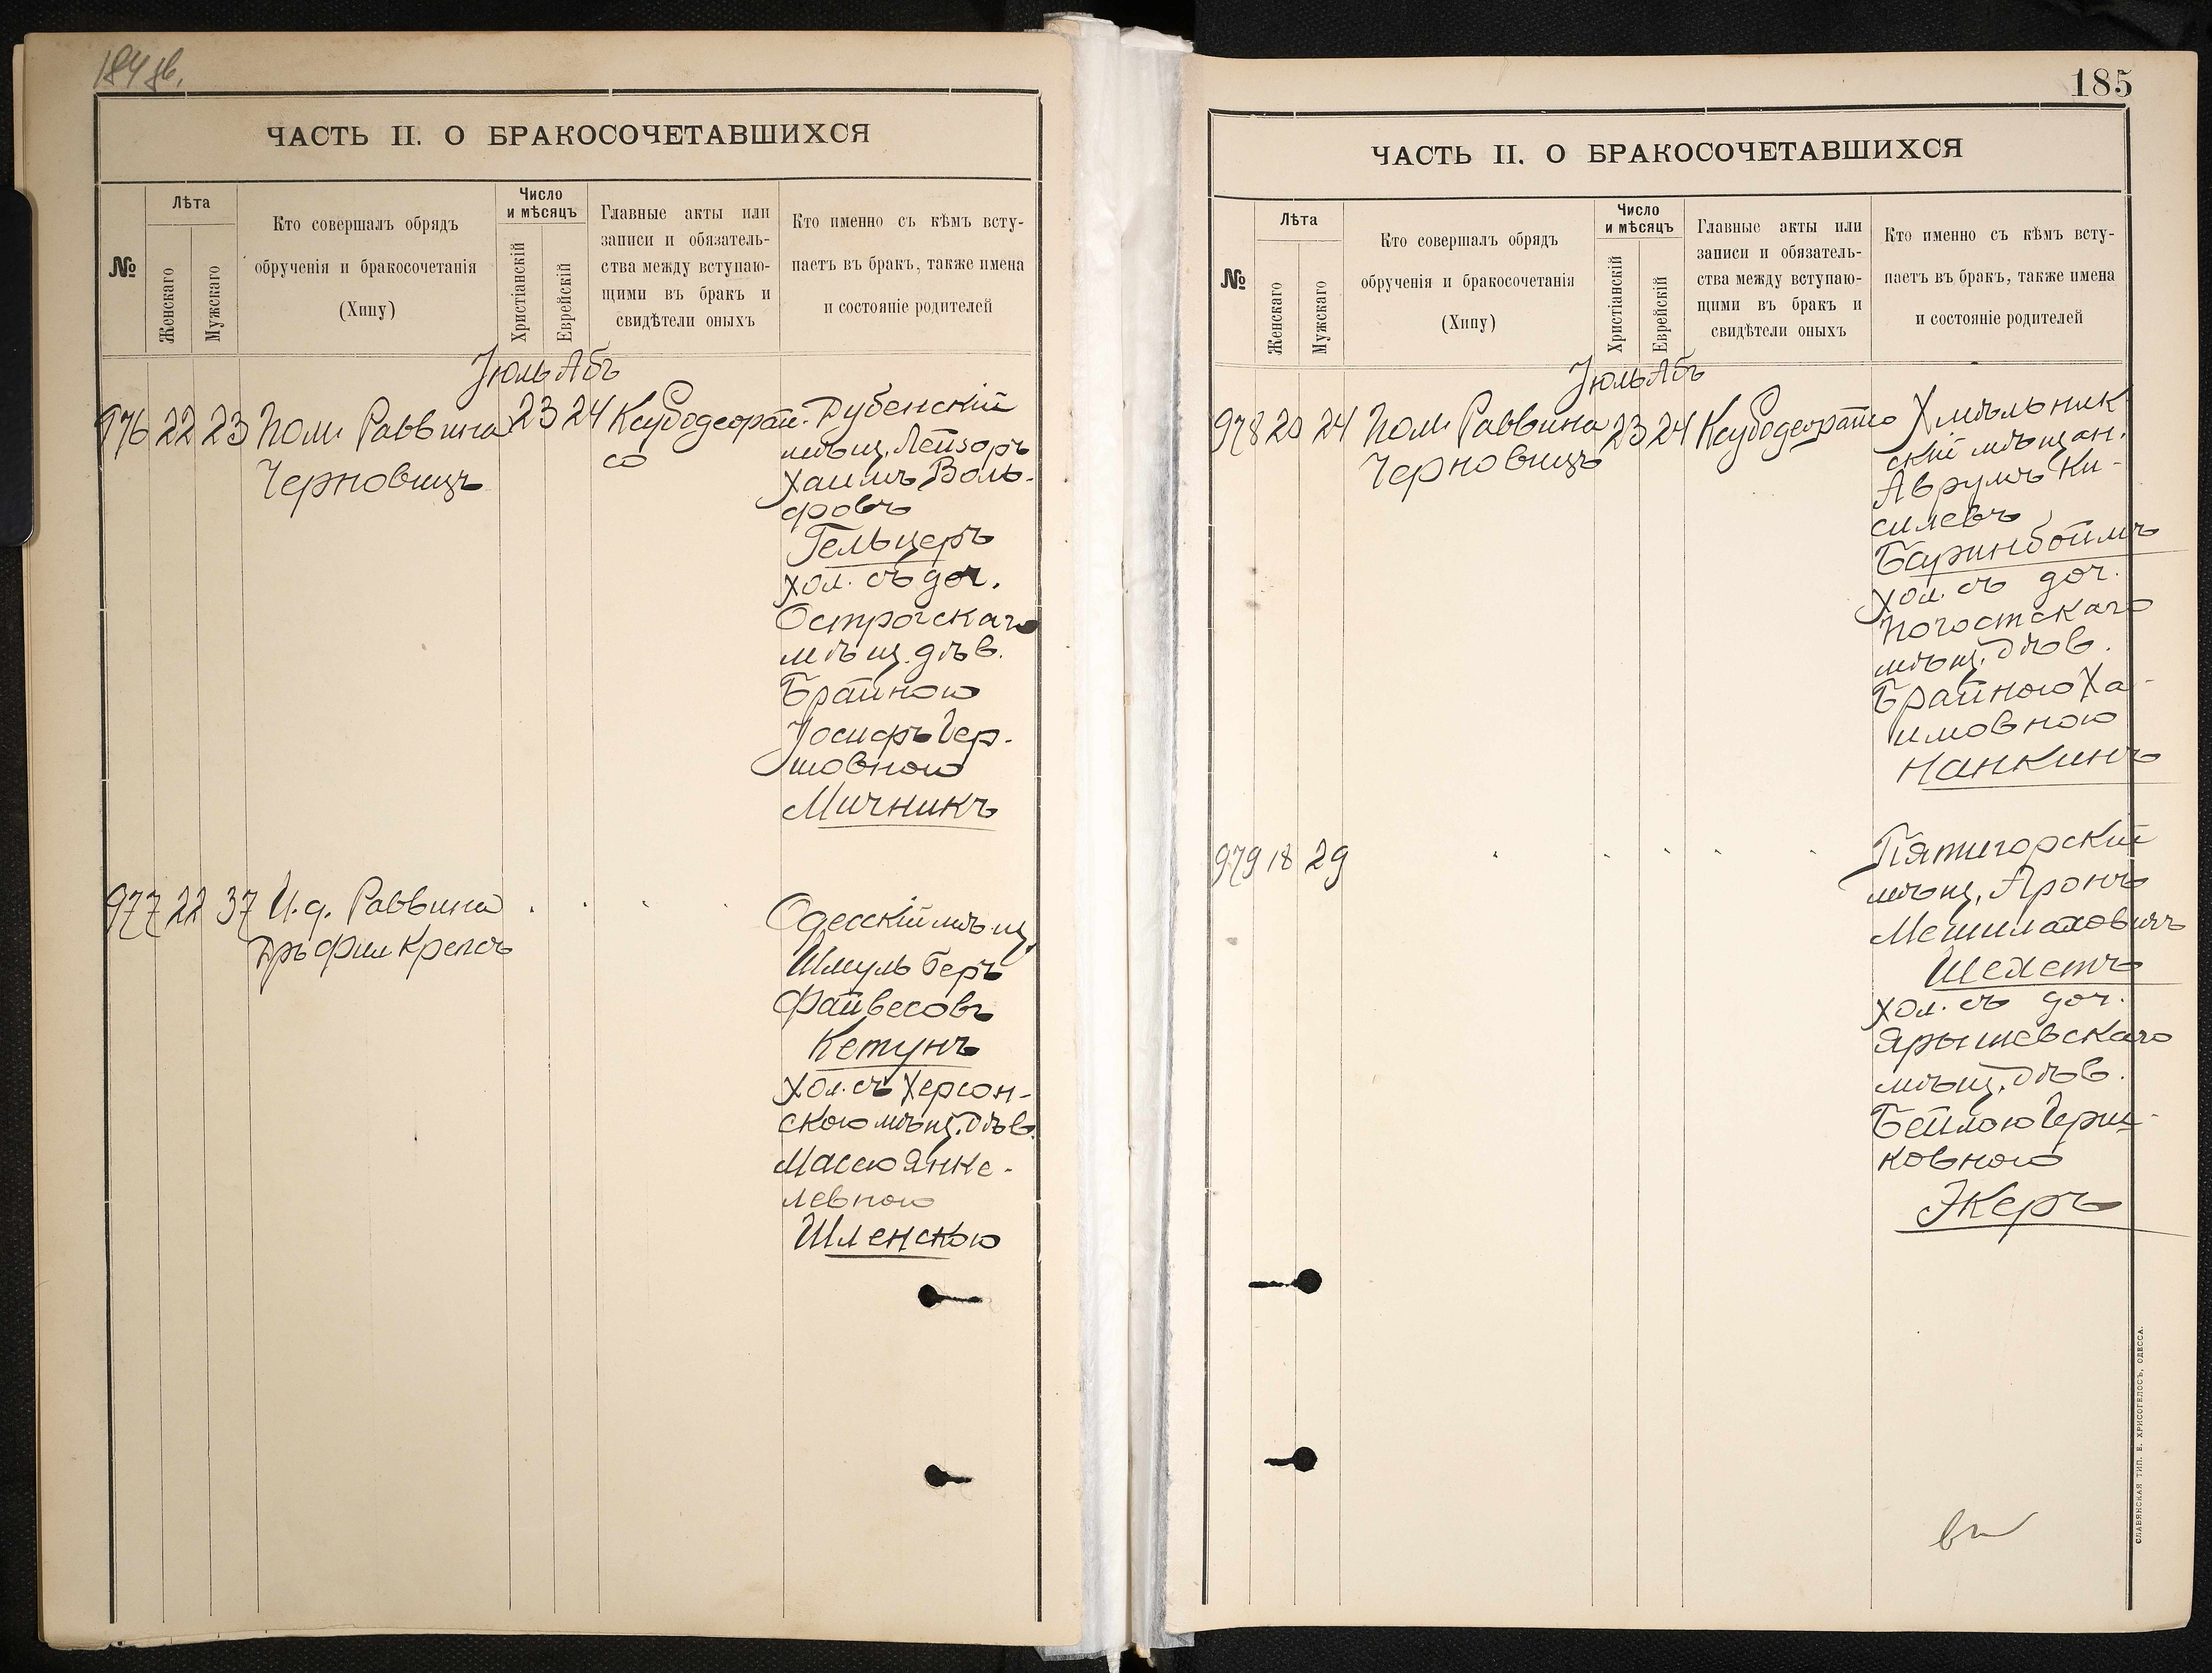 184 об.
ЧАСТЬ II. О БРАКОСОЧЕТАВШИХСЯ
№
Лѣта
Женскаго
Мужскаго
Кто совершалъ обрядъ
обрученія и бракосочетанія
(Хипу)
Число
и мѣсяцъ
Христіанскій
Еврейскій
Главные акты или
записи и обязатель-
ства между вступаю-
щими въ бракъ и
свидѣтели оныхъ
Кто именно съ кѣмъ всту-
паетъ въ бракъ, также имена
и состояніе родителей
Іюль Абъ
976 22 23 Пом. Раввина
Черновицъ
23 24
со
Дубенскій
мѣщ. Лейзоръ
Хаимъ Воль-
фовъ
Гельцеръ
хол. съ доч.
Острогскаго
мѣщ. дѣв.
Брайною
Іосифъ Гер-
шовною
Мичникъ
977 22 37 И.д. Раввина
Дръ Фил Крепсъ
Одесскій мѣщ.
Шмуль Беръ
Файвесовъ
Кетунъ
хол. съ Херсон-
скою мѣщ. дѣв.
Масею Янке-
левною
Шленскою
185
ЧАСТЬ II. О БРАКОСОЧЕТАВШИХСЯ
№
Лѣта
Женскаго
Мужскаго
Кто совершалъ обрядъ
обрученія и бракосочетанія
(Хипу)
Число
и мѣсяцъ
Христіанскій
Еврейскій
Главные акты или
записи и обязатель-
ства между вступаю-
щими въ бракъ и
свидѣтели оныхъ
Кто именно съ кѣмъ всту-
паетъ въ бракъ, также имена
и состояніе родителей
Іюль Абъ
978 20 24 Пом. Раввина
Черновицъ
23 24
Хмѣльник
скій мѣщан.
Аврумъ Ки-
силевъ
Баринбоймъ
хол. съ доч.
Погостскаго
мѣщ. дѣв.
Брайною Ха-
имовною
Нанкинъ
979 18 29
Пятигорскій
мѣщ. Аронъ
Мешилаховичъ
Шехетъ
хол. съ доч.
Ярышевскаго
мѣщ. дѣв.
Бейлою Герш-
ковною
Экеръ
СЛАВЯНСКАЯ ТИП. Е. ХРИСОГЕЛОСЪ, ОДЕССА.